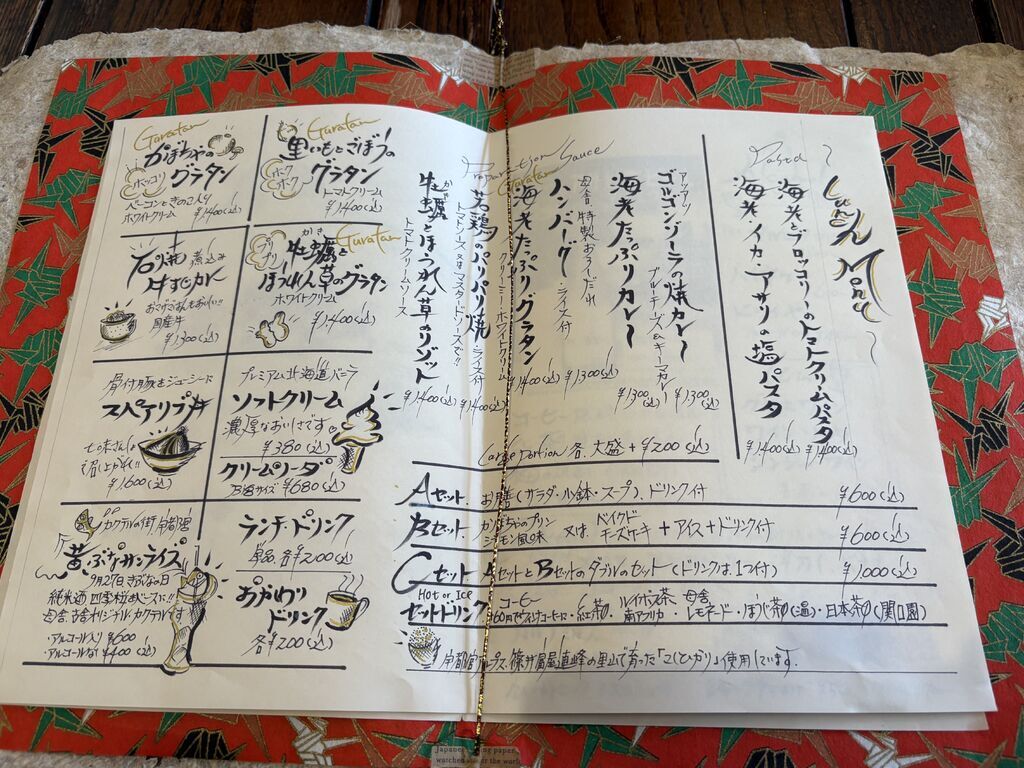 Lunch Menu
Pasta
海老とブロッコリーのトマトクリームパスタ
¥1,400(込)
海老・イカ・アサリの塩パスタ
¥1,400(込)
アツアツ
ゴルゴンゾーラの焼カレー
ブルーチーズ&キーマカレー
¥1,300(込)
海老たっぷりカレー
¥1,300(込)
ハンバーグ
ライス付
¥1,300(込)
海老たっぷりグラタン
クリーミーホワイトクリーム
¥1,400(込)
若鶏のパリパリ焼
ライス付
トマトソース又はマスタードソースで!!
¥1,400(込)
牡蠣とほうれん草のリゾット
トマトクリームソース
¥1,400(込)
Large portion/各、大盛+¥200(込)
Aセット お膳(サラダ・小鉢・スープ)、ドリンク付 ¥600(込)
Bセット かぼちゃのプリン シナモン風味 又は ベイクドチーズケーキ + アイス + ドリンク付 ¥600(込)
Cセット AセットとBセットのダブルのセット(ドリンクは1つ付) ¥1,000(込)
Hot or Ice
セットドリンク コーヒー
・紅茶・ルイボス茶 南アフリカ・レモネード・ほうじ茶(温)・日本茶(関口園)
の里山で育った「こしひかり」使用しています。
Guratan
かぼちゃのグラタン
ホッコリ
ベーコンときのこ入り
ホワイトクリーム ¥1,400(込)
Guratan
里いもとごぼうのグラタン
ホクホク
トマトクリーム
¥1,400(込)
煮込み
国産牛
¥1,300(込)
Guratan
プリプリ
牡蠣とほうれん草のグラタン
ホワイトクリーム
¥1,400(込)
骨付豚をジューシーに
スペアリブ丼
¥1,600(込)
プレミアム北海道バニラ
ソフトクリーム
濃厚なおいしさです
¥380(込)
クリームソーダ
¥680(込)
カクテルの街、宇都宮
黄ぶなサンライズ
9月27日きぶなの日
オリジナルカクテルです
・アルコール入り ¥600
・アルコールなし ¥400(込)
ランチ・ドリンク
単品、各¥200(込)
おかわりドリンク
各¥200(込)